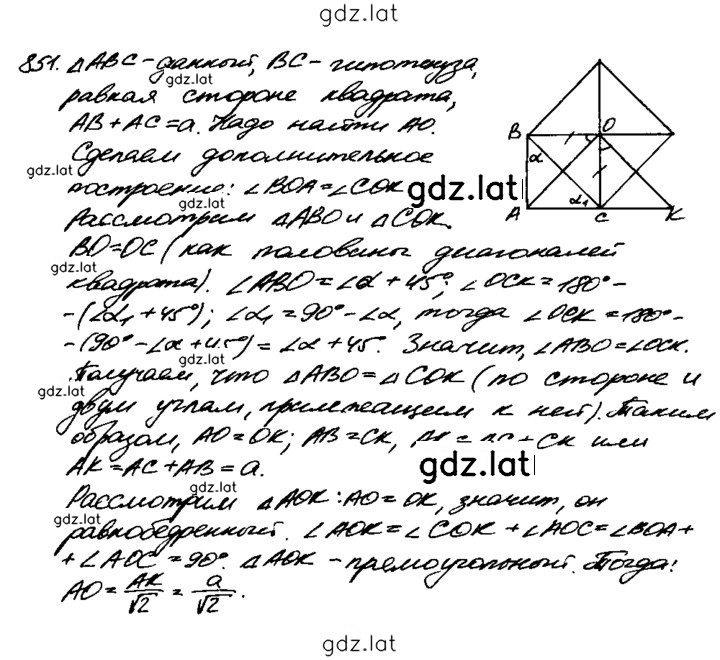 gdz.lat
851. △ABC – данный, BC – гипотенуза,
gdz.lat
равная стороне квадрата,
AB + AC = a. Надо найти AO.
gdz.lat
Сделаем дополнительное
построение: ∠BOA = ∠COK
gdz.lat
gdz.lat
Рассмотрим △ABO и △COK.
BO = OC (как половины диагоналей
gdz.lat
квадрата). ∠ABO = ∠α + 45°; ∠OCK = 180° -
- (∠α₁ + 45°); ∠α₁ = 90° - ∠α, тогда ∠OCK = 180° -
gdz.lat
- (90° - ∠α + 45°) = ∠α + 45°. Значит, ∠ABO = ∠OCK.
Получаем, что △ABO = △COK (по стороне и
gdz.lat
двум углам, прилежащим к ней). Таким
образом, AO = OK; AB = CK, AK = AC + CK или
AK = AC + AB = a.
gdz.lat
gdz.lat
Рассмотрим △AOK: AO = OK, значит, он
gdz.lat
равнобедренный. ∠AOK = ∠COK + ∠AOC = ∠BOA +
+ ∠AOC = 90°. △AOK – прямоугольный. Тогда:
gdz.lat
AO = AK/√2 = a/√2.
gdz.lat
B O
α
α₁
A C K